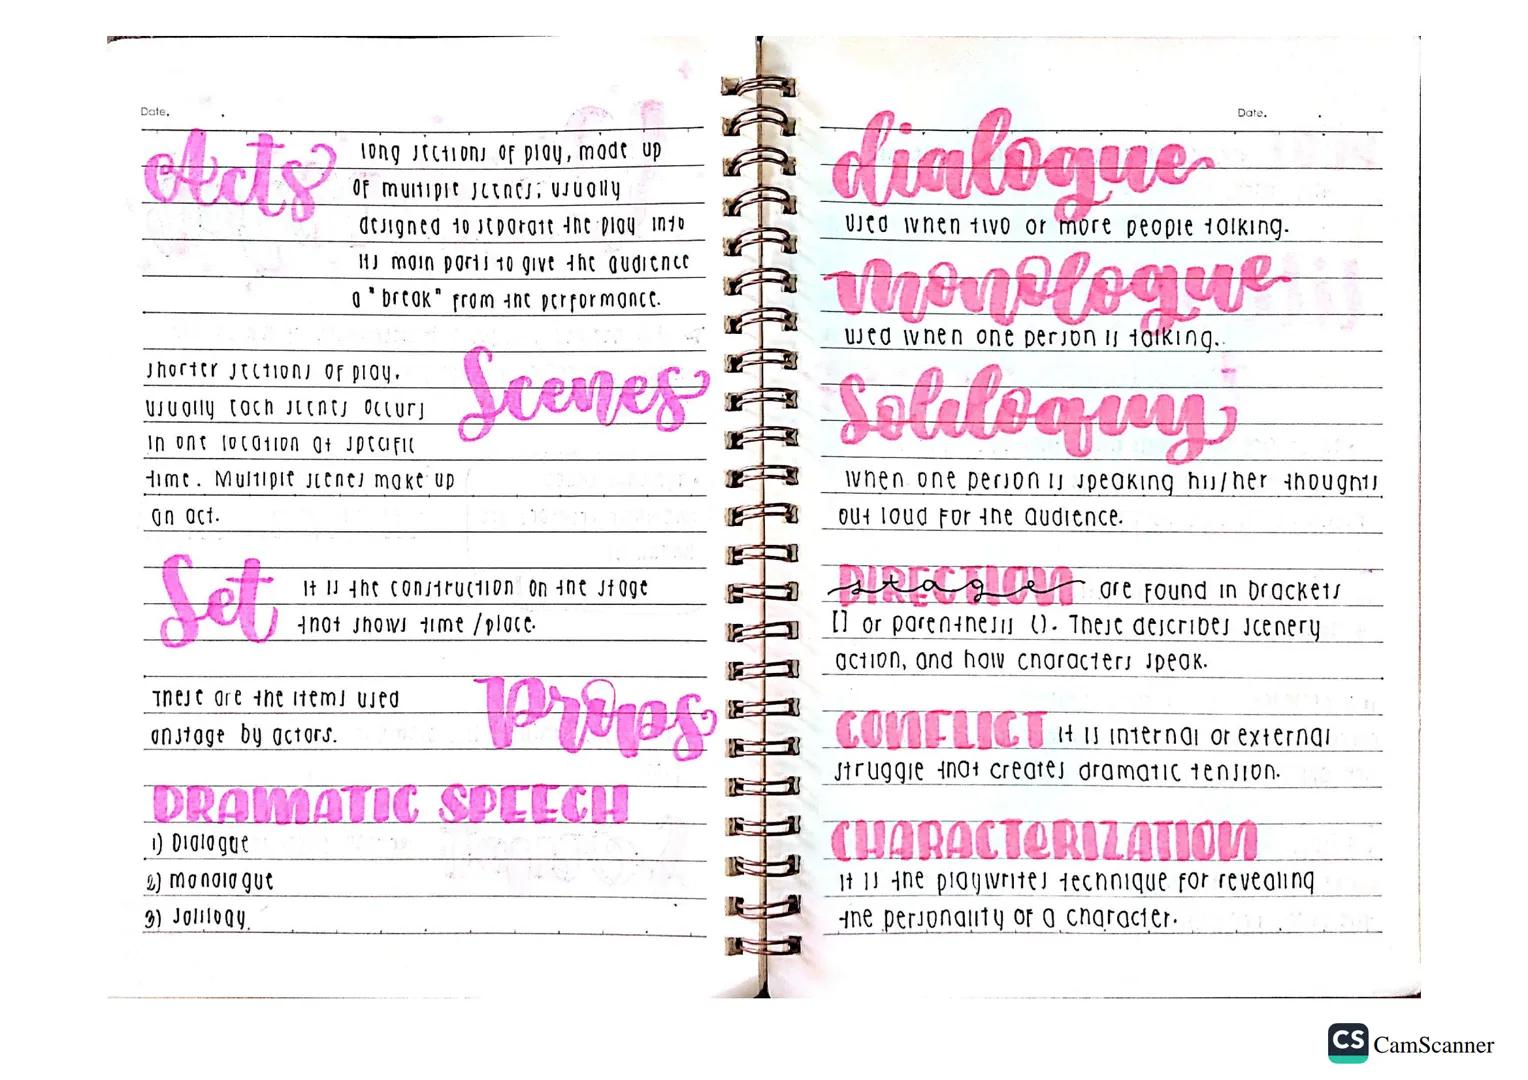 Date.
Acts
long sections of play, made up
of multiple scenes; usually
designed to separate the play into
its main parts to give the audience
a "break" from the performance.
shorter sections of play.
Scenes
usually each scenes occurs
in one location at specific
time. Multiple scenes make up
an act.
Set
It is the construction on the stage
that shows time / place.
These are the items used
Props
onstage by actors.
DRAMATIC SPEECH
1) Dialogue
2) monologue
3) Soliloqy.
Date.
dialogue
used when two or more people talking.
monologue
used when one person is talking.
Soliloquy
When one person is speaking his/her thoughts
out loud for the audience.
stage DIRECTION are found in brackets
[] or parenthesis (). These describes scenery
action, and how characters speak.
CONFLICT it is internal or external
struggle that creates dramatic tension.
CHARACTERIZATION
it is the playwrites technique for revealing
the personality of a character.
CS CamScanner